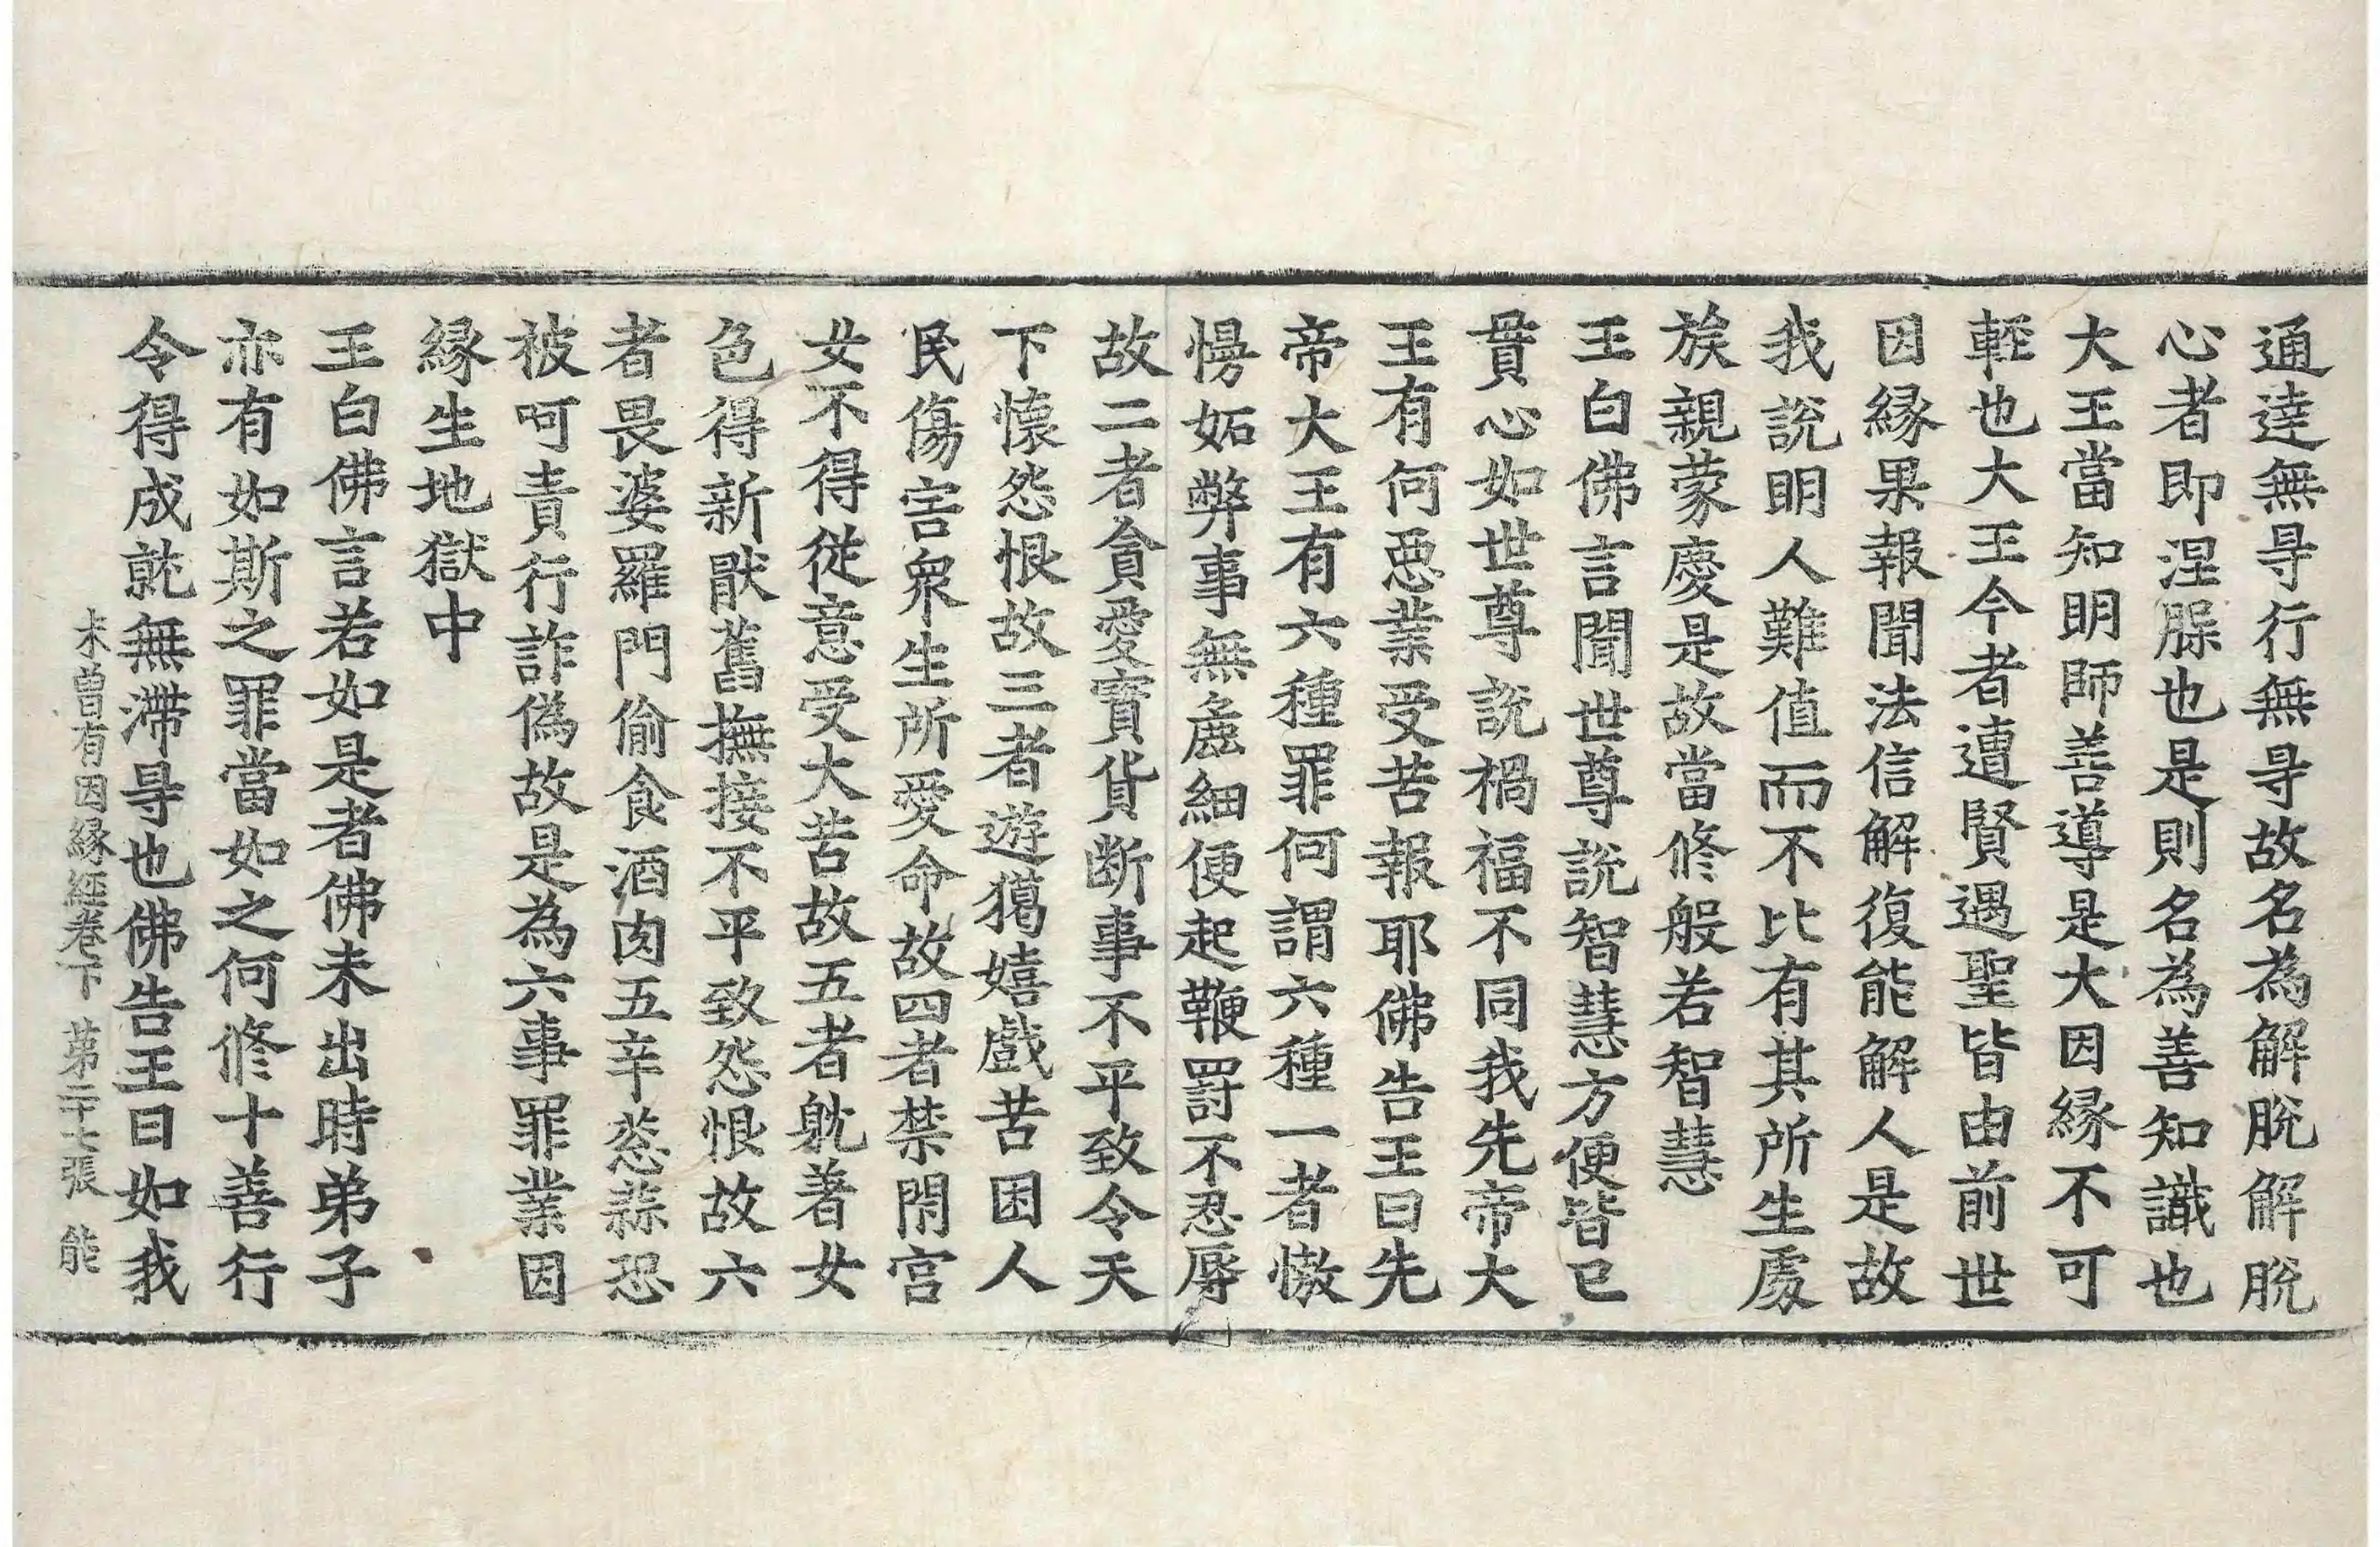 通達無㝵行無㝵故名為解脫解脫
心者即涅槃也是則名為善知識也
大王當知明師善導是大因緣不可
輕也大王今者遭賢遇聖皆由前世
因緣果報聞法信解復能解人是故
我說明人難值而不比有其所生處
族親蒙慶是故當修般若智慧
王白佛言聞世尊說智慧方便皆已
貫心如世尊說禍福不同我先帝大
王有何惡業受苦報耶佛告王曰先
帝大王有六種罪何謂六種一者憿
慢妬弊事無麁細便起鞭罰不忍辱
故二者貪愛寶貨斷事不平致令天
下懷怨恨故三者遊獦嬉戲苦困人
民傷害衆生所愛命故四者禁閇宮
女不得從意受大苦故五者躭著女
色得新猒舊撫接不平致怨恨故六
者畏婆羅門偷食酒肉五辛葱蒜恐
被呵責行詐偽故是為六事罪業因
緣生地獄中
王白佛言若如是者佛未出時弟子
亦有如斯之罪當如之何修十善行
令得成就無滯㝵也佛告王曰如我
未曾有因緣經卷下 第二十七張 能